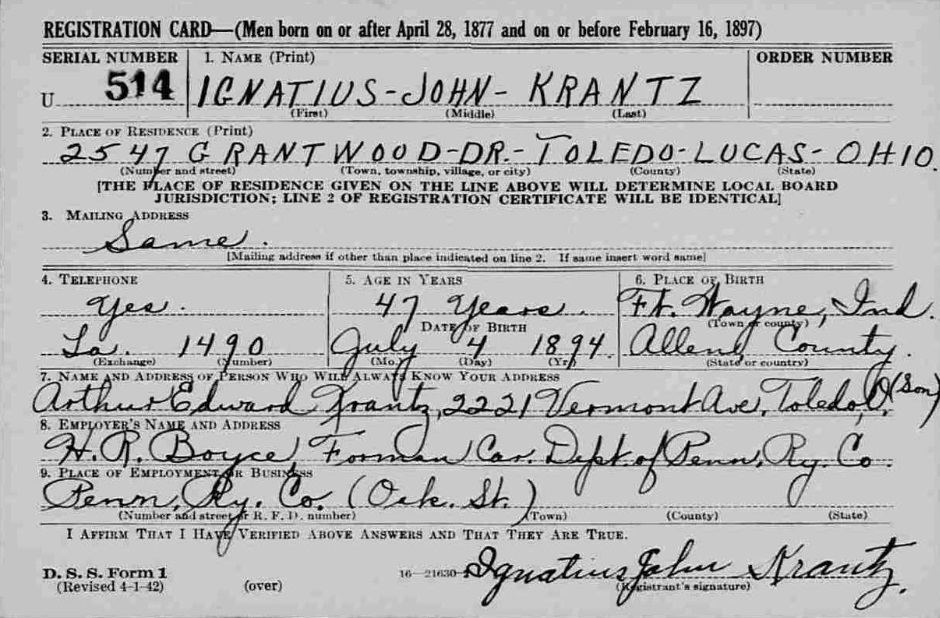 REGISTRATION CARD—(Men born on or after April 28, 1877 and on or before February 16, 1897)
SERIAL NUMBER 1. NAME (Print) ORDER NUMBER
U 514 IGNATIUS-JOHN-KRANTZ
(First) (Middle) (Last)
2. PLACE OF RESIDENCE (Print)
2547 GRANTWOOD-DR.-TOLEDO-LUCAS-OHIO.
(Number and street) (Town, township, village, or city) (County) (State)
[THE PLACE OF RESIDENCE GIVEN ON THE LINE ABOVE WILL DETERMINE LOCAL BOARD
JURISDICTION; LINE 2 OF REGISTRATION CERTIFICATE WILL BE IDENTICAL]
3. MAILING ADDRESS
Same.
[Mailing address if other than place indicated on line 2. If same insert word same]
4. TELEPHONE 5. AGE IN YEARS 6. PLACE OF BIRTH
Yes. 47 Years. Ft. Wayne, Ind.
DATE OF BIRTH (Town or county)
La. 1490 July 4 1894. Allen County.
(Exchange) (Number) (Mo.) (Day) (Yr.) (State or country)
7. NAME AND ADDRESS OF PERSON WHO WILL ALWAYS KNOW YOUR ADDRESS
Arthur Edward Krantz, 2221 Vermont Ave, Toledo, O. (Son)
8. EMPLOYER'S NAME AND ADDRESS
H. R. Boyce, Forman Car. Dept. of Penn. Ry. Co.
9. PLACE OF EMPLOYMENT OR BUSINESS
Penn. Ry. Co. (Oak. St.)
(Number and street or R. F. D. number) (Town) (County) (State)
I AFFIRM THAT I HAVE VERIFIED ABOVE ANSWERS AND THAT THEY ARE TRUE.
D. S. S. Form 1 16—21630-2 Ignatius John Krantz.
(Revised 4-1-42) (over) (Registrant's signature)